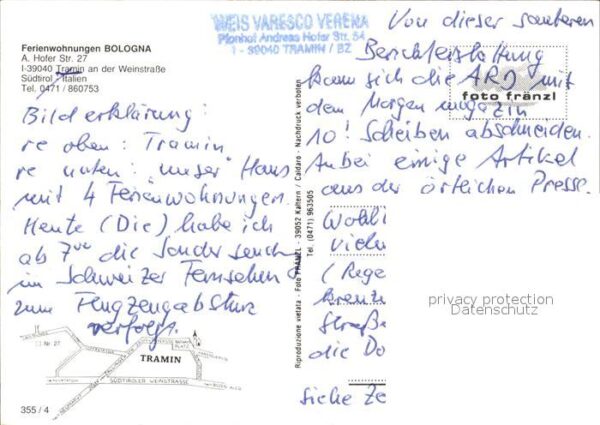 Ferienwohnungen BOLOGNA
A. Hofer Str. 27
I-39040 Tramin an der Weinstraße
Südtirol - Italien
Tel. 0471 / 860753
WEIS VARESCO VERENA
Plonhof Andreas Hofer Str. 54
I - 39040 TRAMIN / BZ
Bilderklärung:
re oben: Tramin
re unten: "unser" Haus
mit 4 Ferienwohnungen.
Heute (Die) habe ich
ab 7⁰⁰ die Sondersend
im Schweizer Fernsehen
zum Flugzeugabsturz
verfolgt.
Nr. 27
TRAMIN
SÜDTIROLER WEINSTRASSE
355 / 4
Riproduzione vietata - Foto FRÄNZL - 39052 Kaltern / Caldaro - Nachdruck verboten
Tel. (0471) 963505
foto fränzl
Von dieser sauberen
Berichterstattung
kann sich die ARD mit
dem Morgenmagazin
10! Scheiben abschneiden.
Anbei einige Artikel
aus der örtlichen Presse.
Wohli
viele
(Rege
Kreuze
Straße
die Do
siehe Ze
privacy protection
Datenschutz